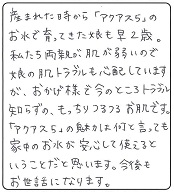 産まれた時から「アクアス5」の
お水で育ってきた娘も早2歳。
私たち両親が肌が弱いので
娘の肌トラブルも心配しています
が、おかげ様で今のところトラブル
知らずの、もっちりつるつるお肌です。
「アクアス5」の魅力は何と言っても
家中のお水が安心して使えると
いうことだと思います。今後も
お世話になります。